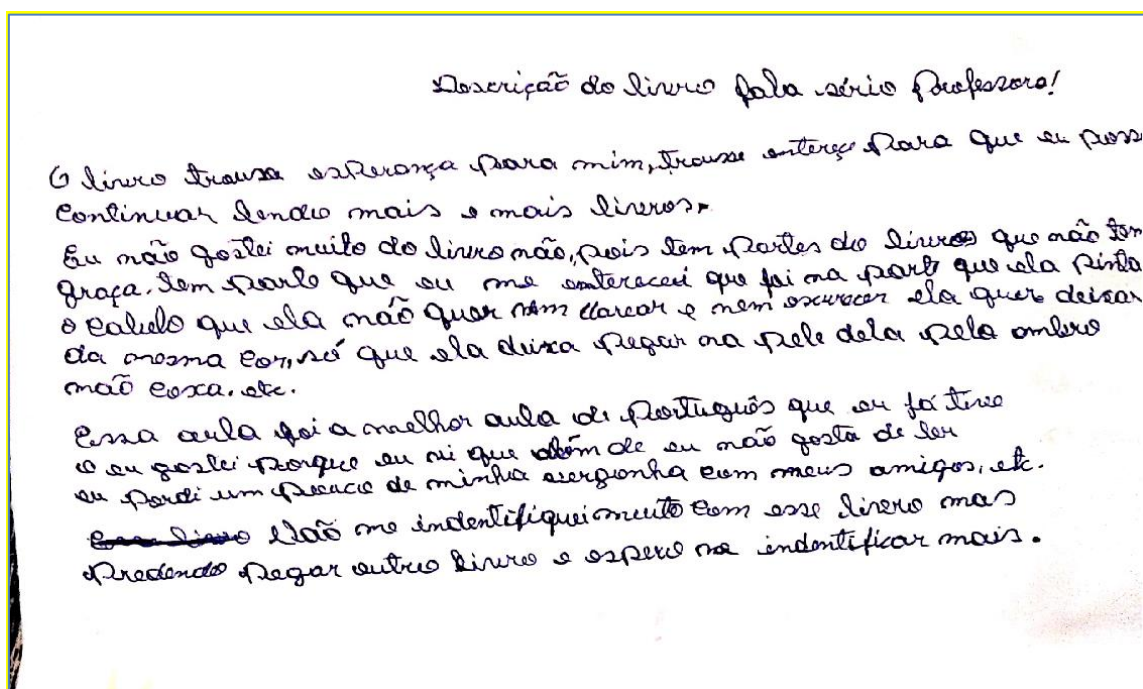 Descrição do livro fala sério Professora!
O livro trouxe esperança para mim, trouxe entereçe Para que eu posso
Continuar lendo mais e mais livros.
Eu não gostei muito do livro não, pois tem Partes do livros que não tem
graça. tem parte que eu me entereceei que foi na part que ela Pinta
o cabelo que ela não quer nem clarear e nem escurecer ela quer deixar
da mesma cor, só que ela deixa Pegar na pele dela pelo ombro
mão coxa. etc.
Essa aula foi a melhor aula de Português que eu já tive
e eu gostei porque eu vi que além de eu não gosta de ler
eu Perdi um pouco de minha vergonha com meus amigos, etc.
Não me indentifiquei muito com esse livro mas
Predendo Pegar outro livro e espero me indentificar mais.